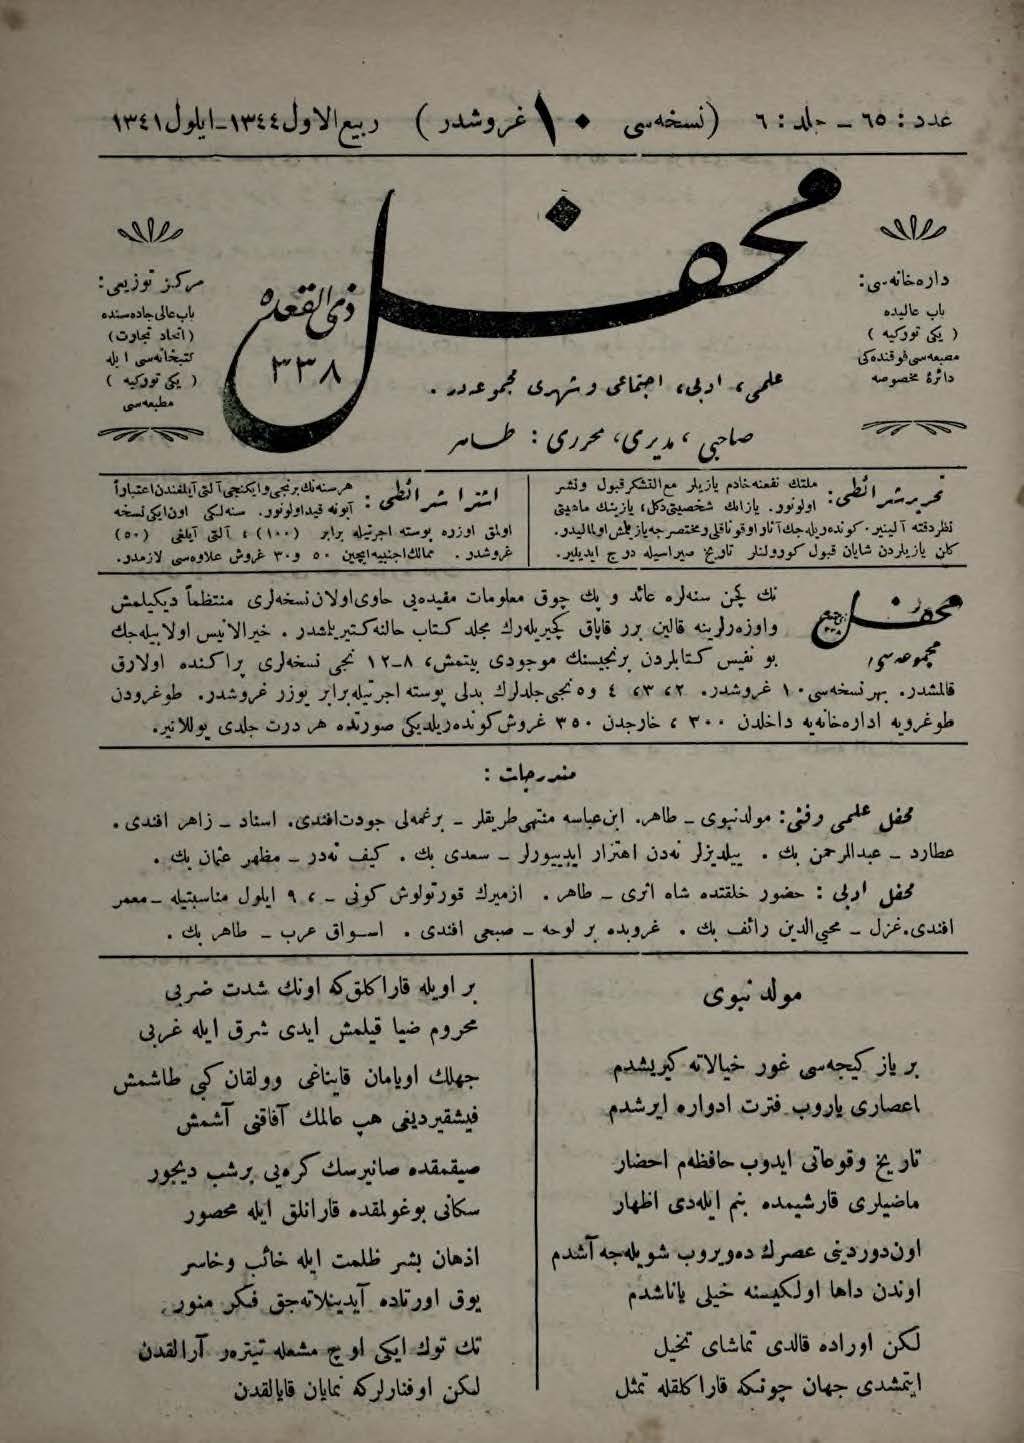 عدد : ٦٥ – جلد : ٦ (نسخه‌سی ١٠ غروشدر) ربیع‌الاول ١٣٤٤-ایلول ١٣٤١
محفل
ذی‌القعده
٣٣٨
علمی، ادبی، اجتماعی و شهری مجموعه‌در .
صاحبی ، مدیری، محرری : طاهر
داره‌خانه‌سی:
باب عالیده
( یکی تورکیه )
مطبعه‌سی فوقنده‌کی
دائرهٔ مخصوصه
مرکز توزیعی:
باب‌عالی جاده‌سنده
(اتحاد تجارت)
کتبخانه‌سی ایله
( یکی تورکیه )
مطبعه‌سی
تحریر شرائطی: ملتک نفعنه‌خادم یازیلر مع‌التشکر قبول ونشر
اولونور. یازانك شخصیتی‌دکل، یازینك ماهیتی
نظردقته آلینیر. کونده‌ریله‌جك آثار اوقوناقلی‌ومختصرجه‌یازیلمش‌اولمالیدر.
کلن یازیلردن شایان قبول کورولنلر تاریخ صیراسیله درج ایدیلیر.
اشترا شرائطی: هرسنه‌نك برنجی‌وایکنجی‌آلتی‌آیلغندن‌اعتباراً
آبونه قیداولونور. سنه‌لکی اون‌ایکی‌نسخه
اولمق اوزره پوسته اجرتیله برابر (١٠٠)، آلتی آیلغی (٥٠)
غروشدر. ممالك‌اجنبیه‌ایچین ٥٠ و٣٠ غروش علاوه‌سی لازمدر.
محفل
رجب
٣٣٨
مجموعه‌سی،
نك کچن سنه‌لره عائد و پك چوق معلومات مفیده‌یی حاوی‌اولان‌نسخه‌لری منتظماً دیکیلمش
واوزه‌رلرینه قالین برر قاپاق کچیریله‌رك مجلد کتاب حالنه‌کتیریلمشدر . خیرالانیس اولابیله‌جك
بو نفیس کتابلردن برنجیسنك موجودی بیتمش، ٨–١٢ نجی نسخه‌لری پراکنده اولارق
قالمشدر. بهر نسخه‌سی ١٠ غروشدر. ٢، ٣، ٤ و٥ نجی‌جلدلرك بدلی پوسته اجرتیله‌برابر یوزر غروشدر. طوغرودن
طوغرویه اداره‌خانه‌یه داخلدن ٣٠٠ ، خارجدن ٣٥٠ غروش‌کونده‌ریلدیکی صورتده هر درت جلدی یوللانیر.
مندرجات :
محفل علمی وفنی: مولدنبوی – طاهر. ابن‌عباسه منتهی‌طریقلر – برغمه‌لی جودت‌افندی. استاد – زاهر افندی .
عطارد – عبدالرحمن بك . ییلدیزلر نه‌دن اهتزاز ایدییورلر – سعدی بك . کیف نه‌در – مظهر عثمان بك .
محفل ادبی : حضور خلقتده شاه اثری – طاهر . ازمیرك قورتولوش کونی –، ٩ ایلول مناسبتیله –معمر
افندی.غزل – محیی‌الدین رائف بك . غروبده بر لوحه – صبحی افندی . اسواق عرب – طاهر بك .
مولد نبوی
بر یاز کیجه‌سی غور خیالاته کیریشدم
اعصاری یاروب فترت ادواره ایرشدم
تاریخ وقوعاتی ایدوب حافظه‌م احضار
ماضیلری قارشیمده بنم ایله‌دی اظهار
اون‌دوردینی عصرك ده‌ویروب شویله‌جه آشدم
اوندن داها اولکیسنه خیلی یاناشدم
لکن اوراده قالدی تماشای تخیل
ایتمشدی جهان چونکه قاراکلقله تمثل
بر اویله قاراکلق‌که اونك شدت ضربی
محروم ضیا قیلمش ایدی شرق ایله غربی
جهلك اویامان قایناغی وولقان کبی طاشمش
فیشقیردیغی هپ عالمك آفاقنی آشمش
صیقمقده صانیرسك کره‌یی برشب دیجور
سکانی بوغولمقده قارانلق ایله محصور
اذهان بشر ظلمت ایله خائب وخاسر
یوق اورتاده آیدینلاته‌جق فکر منور
تك توك ایکی اوچ مشعله تیتره‌ر آرالقدن
لکن اوفنارلرکه نمایان قایالقدن